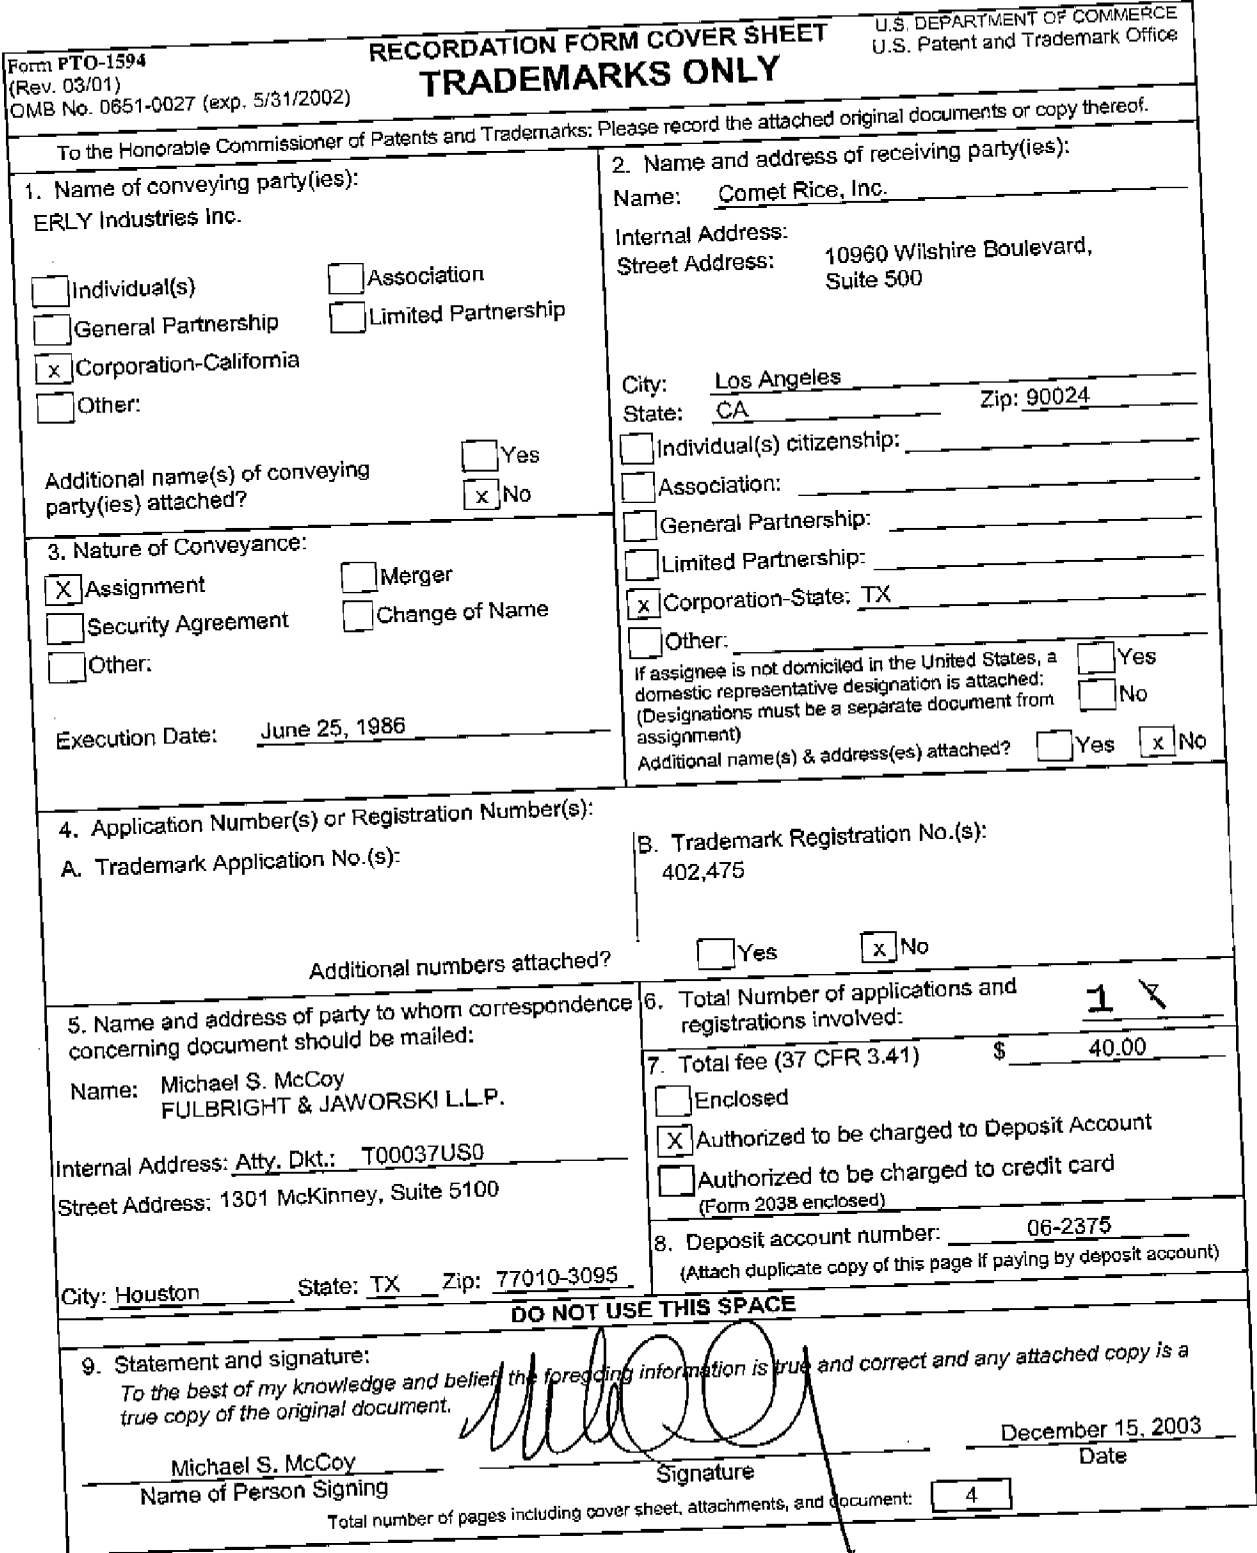 Form PTO-1594
(Rev. 03/01)
OMB No. 0651-0027 (exp. 5/31/2002)
RECORDATION FORM COVER SHEET
TRADEMARKS ONLY
U.S. DEPARTMENT OF COMMERCE
U.S. Patent and Trademark Office
To the Honorable Commissioner of Patents and Trademarks: Please record the attached original documents or copy thereof.
1. Name of conveying party(ies):
ERLY Industries Inc.
Individual(s)
Association
General Partnership
Limited Partnership
x Corporation-California
Other:
Additional name(s) of conveying
party(ies) attached?
Yes
x No
2. Name and address of receiving party(ies):
Name: Comet Rice, Inc.
Internal Address:
Street Address: 10960 Wilshire Boulevard,
Suite 500
City: Los Angeles
State: CA Zip: 90024
Individual(s) citizenship:
Association:
General Partnership:
Limited Partnership:
x Corporation-State: TX
Other:
If assignee is not domiciled in the United States, a
domestic representative designation is attached:
(Designations must be a separate document from
assignment)
Yes
No
Additional name(s) & address(es) attached? Yes x No
3. Nature of Conveyance:
X Assignment
Merger
Security Agreement
Change of Name
Other:
Execution Date: June 25, 1986
4. Application Number(s) or Registration Number(s):
A. Trademark Application No.(s):
B. Trademark Registration No.(s):
402,475
Additional numbers attached? Yes x No
5. Name and address of party to whom correspondence
concerning document should be mailed:
Name: Michael S. McCoy
FULBRIGHT & JAWORSKI L.L.P.
Internal Address: Atty. Dkt.: T00037US0
Street Address: 1301 McKinney, Suite 5100
City: Houston State: TX Zip: 77010-3095
6. Total Number of applications and
registrations involved: 1
7. Total fee (37 CFR 3.41) $ 40.00
Enclosed
X Authorized to be charged to Deposit Account
Authorized to be charged to credit card
(Form 2038 enclosed)
8. Deposit account number: 06-2375
(Attach duplicate copy of this page if paying by deposit account)
DO NOT USE THIS SPACE
9. Statement and signature:
To the best of my knowledge and belief, the foregoing information is true and correct and any attached copy is a
true copy of the original document.
Michael S. McCoy
Name of Person Signing
Signature
December 15, 2003
Date
Total number of pages including cover sheet, attachments, and document: 4